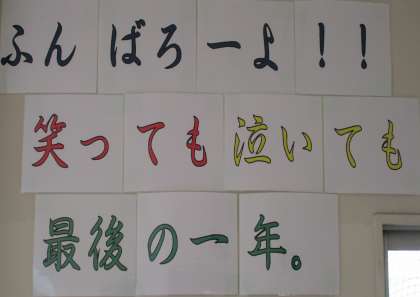 ふんばろーよ!!
笑っても泣いても
最後の一年。